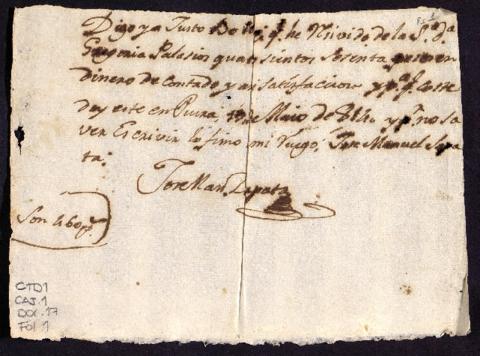 Digo ya Justo q.e he Resivido de la S.ra D.a
Eugenia Palasios quatrosientos Sesenta pesos en
dinero de contado y a mi satisfacion y p.a q.e coste
doy este en Piura, Maio de y p.r no sa
ver Escrivir lo firmo mi Ruego, Jose Manuel Sapa
ta,
Jose Man.l Zapata
Son 460 p.s
CTD1
CAJ. 1
DOC. 17
FOL 1